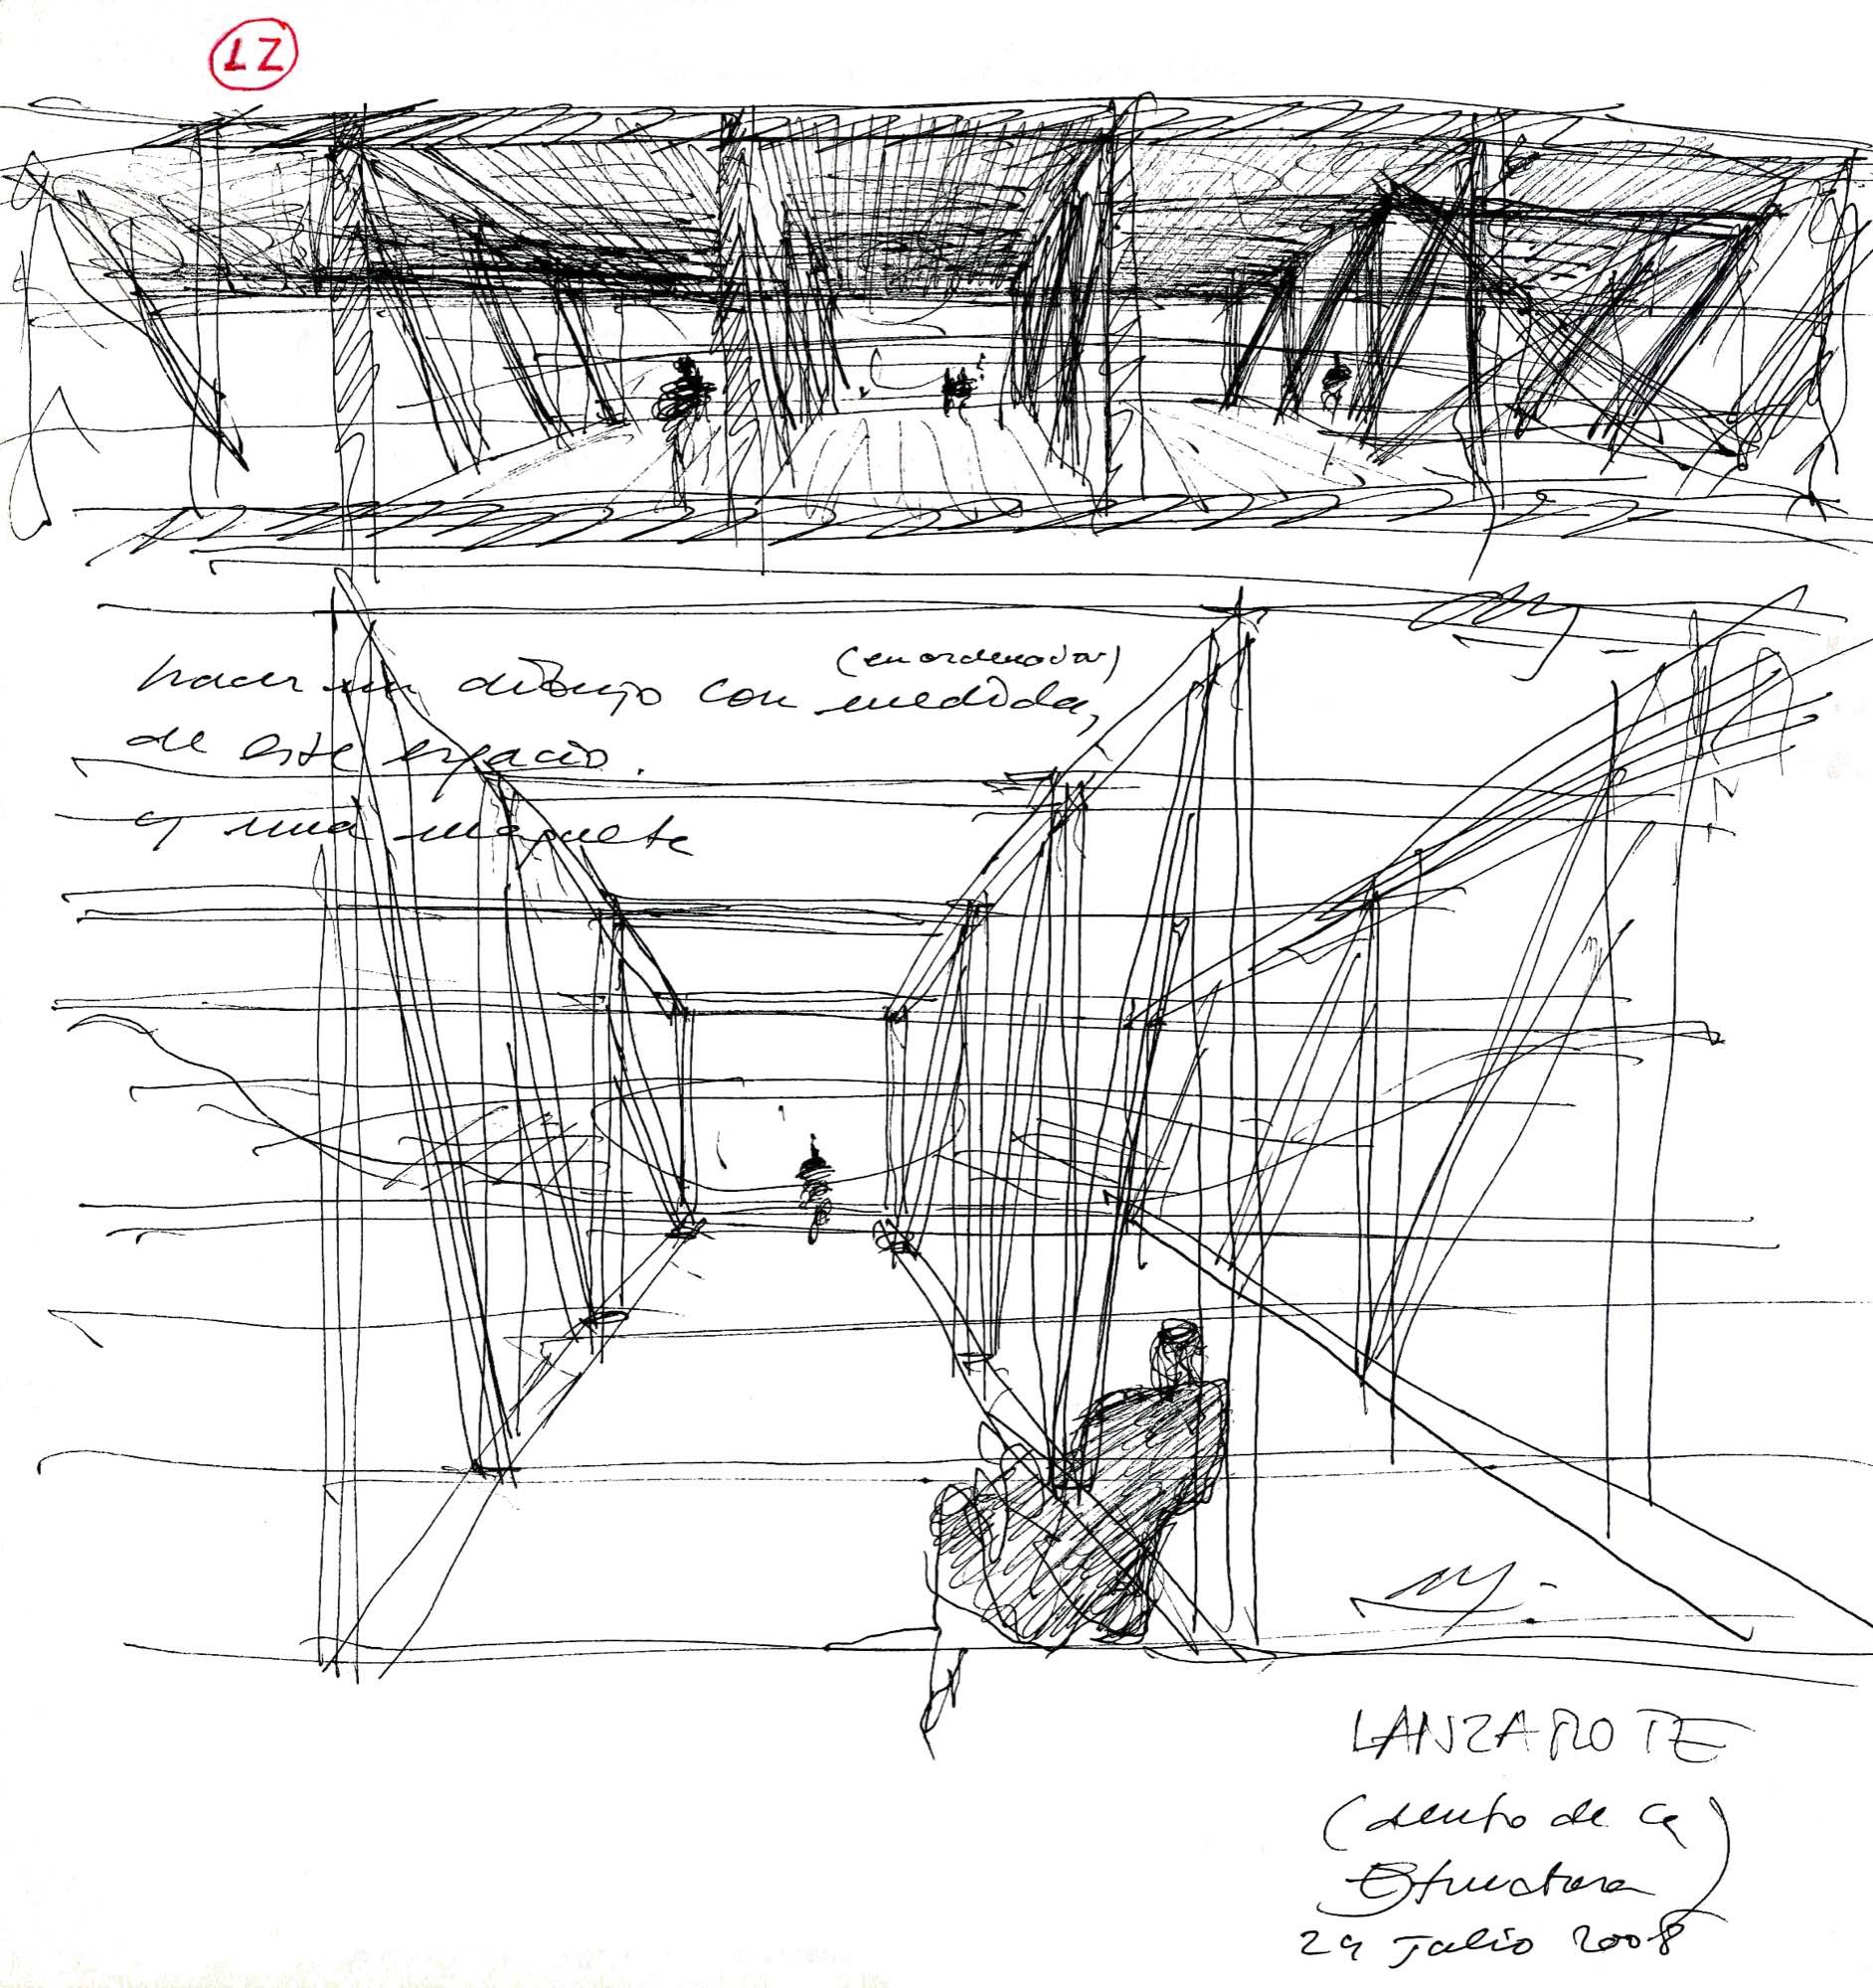 LZ
(en ordenador)
hacer un dibujo con medida,
de este espacio.
y una maqueta
LANZAROTE
(dentro de la
Estructura)
29 julio 2008